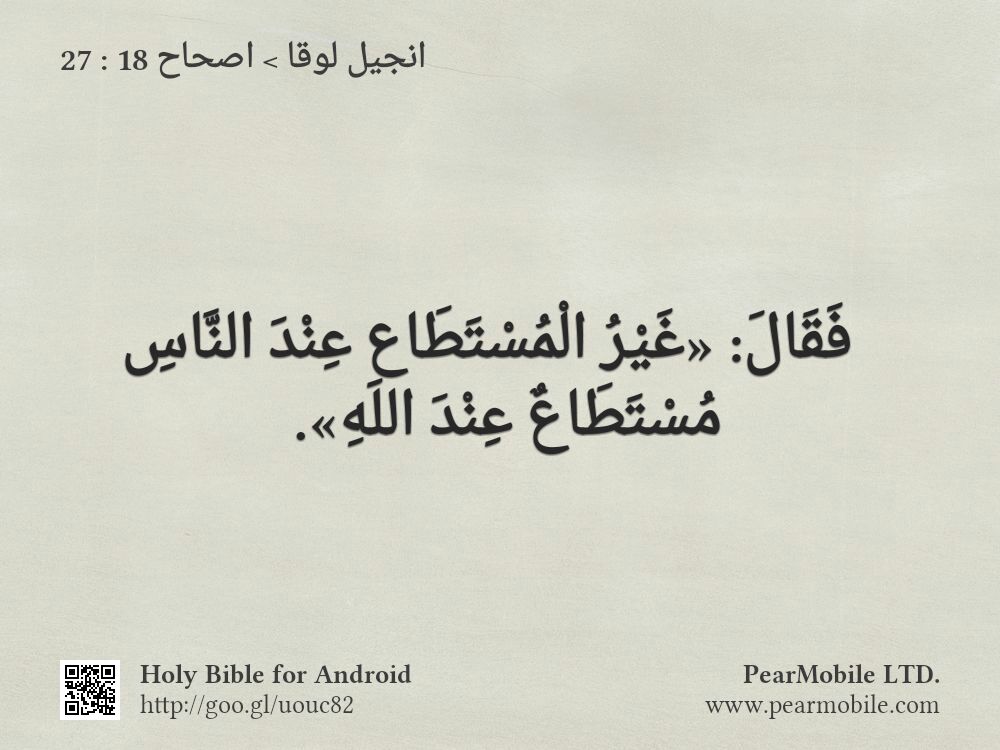 انجيل لوقا > اصحاح 18 : 27
فَقَالَ: «غَيْرُ الْمُسْتَطَاعِ عِنْدَ النَّاسِ
مُسْتَطَاعٌ عِنْدَ اللَهِ».
Holy Bible for Android
http://goo.gl/uouc82
PearMobile LTD.
www.pearmobile.com